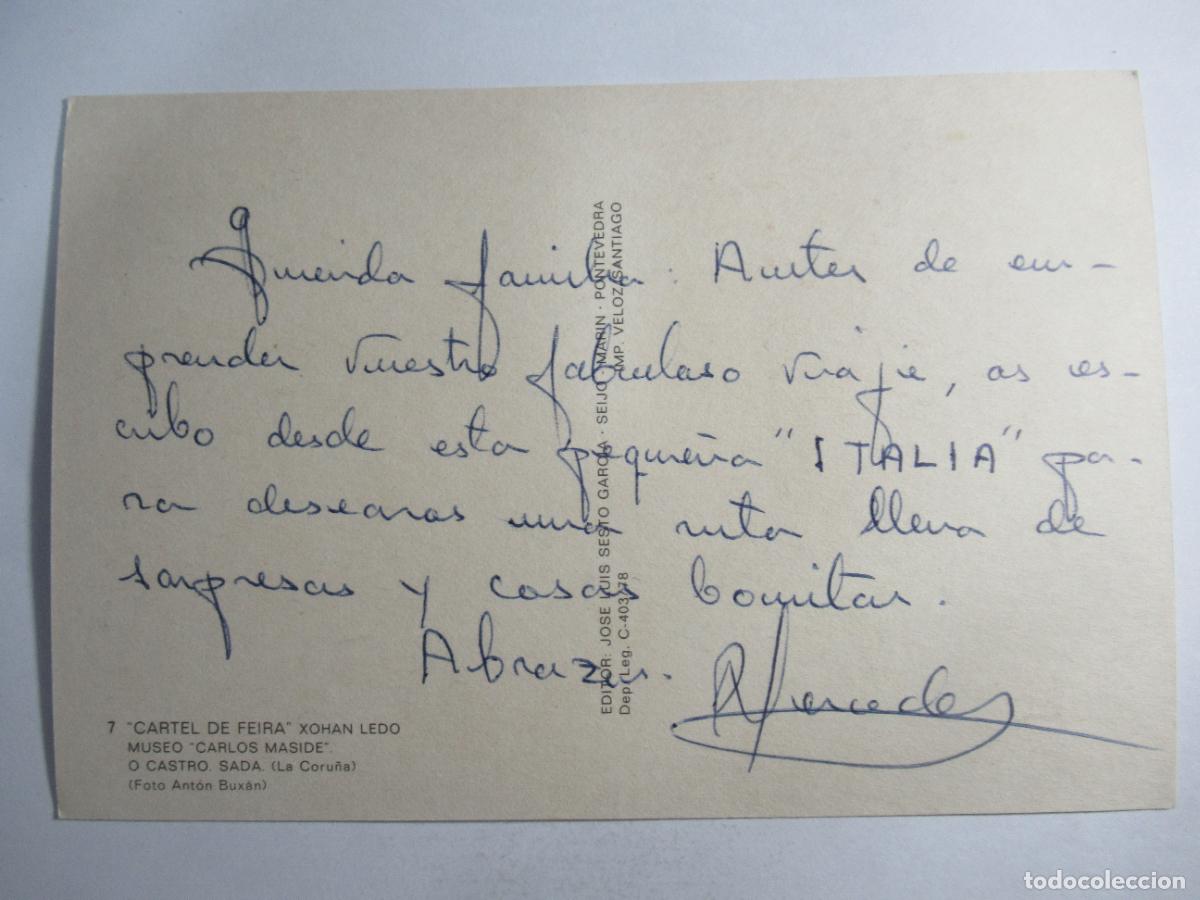 Querida familia: Antes de em-
prender vuestro fabuloso viaje, os es-
cribo desde esta pequeña "ITALIA" pa-
ra desearos una ruta llena de
sorpresas y cosas bonitas.
Abrazos.
Mercedes
EDITOR: JOSE LUIS SESTO GARCIA · SEIJO · MARIN · PONTEVEDRA
Dep. Leg. C-403-78 IMP. VELOZ SANTIAGO
7 "CARTEL DE FEIRA" XOHAN LEDO
MUSEO "CARLOS MASIDE".
O CASTRO. SADA. (La Coruña)
(Foto Antón Buxán)
todocoleccion